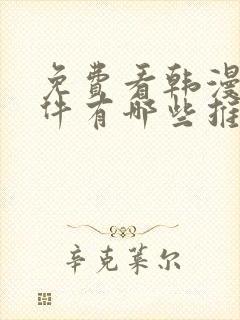 免费看韩漫
件有哪些推
辛克莱尔